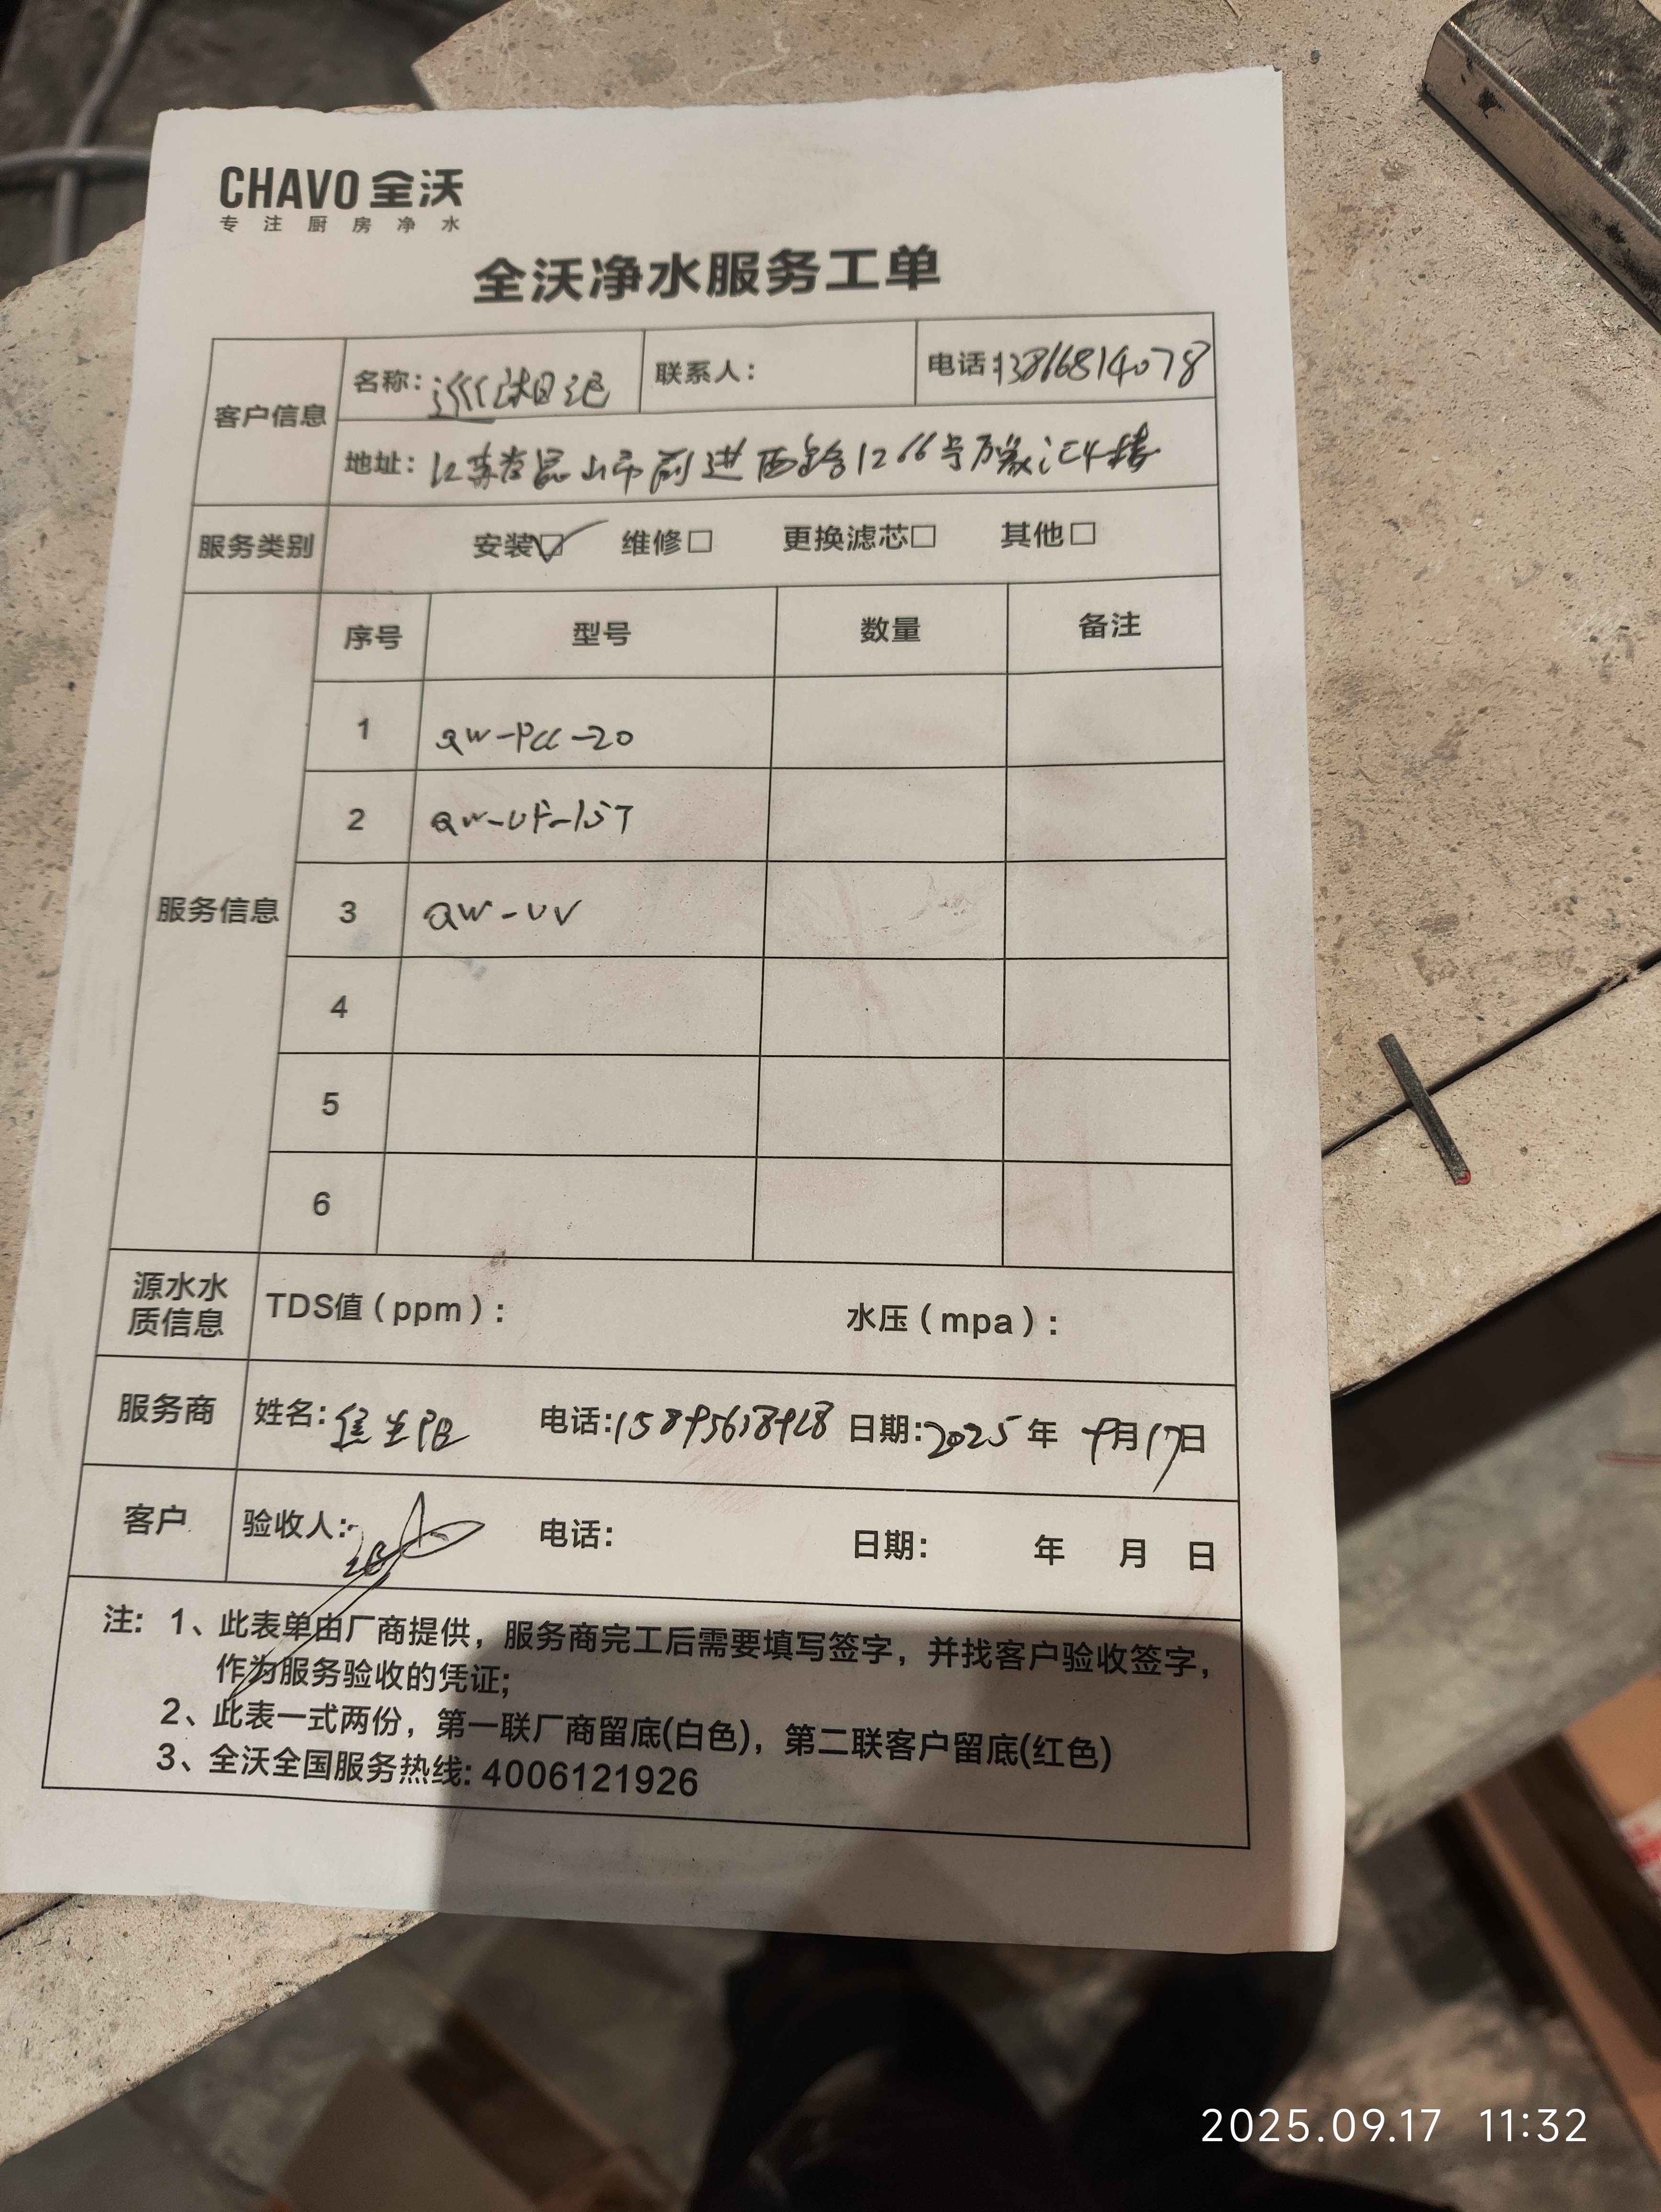 CHAVO 全沃
专注厨房净水
全沃净水服务工单
客户信息 名称: 日记 联系人: 电话:13816814078
地址: 江苏省昆山市前进西路1266号万象汇4楼
服务类别 安装☑ 维修□ 更换滤芯□ 其他□
服务信息 序号 型号 数量 备注
1 QW-PCC-20
2 QW-UF-15T
3 QW-UV
4
5
6
源水水质信息 TDS值(ppm): 水压(mpa):
服务商 姓名: 电话: 日期:2025年9月17日
客户 验收人: 电话: 日期: 年 月 日
注: 1、此表单由厂商提供，服务商完工后需要填写签字，并找客户验收签字，
作为服务验收的凭证;
2、此表一式两份，第一联厂商留底(白色)，第二联客户留底(红色)
3、全沃全国服务热线: 4006121926
2025.09.17 11:32